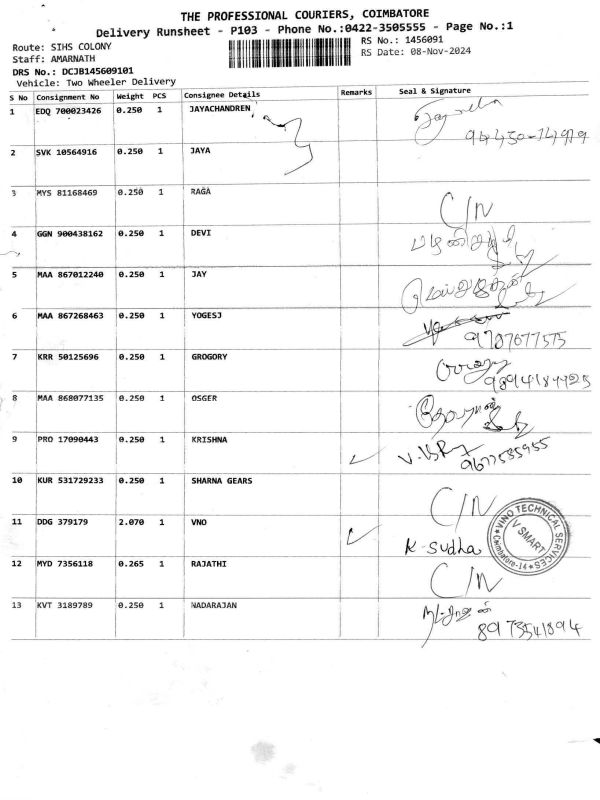 THE PROFESSIONAL COURIERS, COIMBATORE
Delivery Runsheet - P103 - Phone No.:0422-3505555 - Page No.:1
Route: SIHS COLONY
RS No.: 1456091
Staff: AMARNATH
RS Date: 08-Nov-2024
DRS No.: DCJB145609101
Vehicle: Two Wheeler Delivery
S No Consignment No Weight PCS Consignee Details Remarks Seal & Signature
1 EDQ 700023426 0.250 1 JAYACHANDREN
2 SVK 10564916 0.250 1 JAYA
3 MYS 81168469 0.250 1 RAGA C/N
4 GGN 900438162 0.250 1 DEVI
5 MAA 867012240 0.250 1 JAY
6 MAA 867268463 0.250 1 YOGESJ 9787677575
7 KRR 50125696 0.250 1 GROGORY
8 MAA 868077135 0.250 1 OSGER
9 PRO 17090443 0.250 1 KRISHNA 9677535955
10 KUR 531729233 0.250 1 SHARNA GEARS C/N
11 DDG 379179 2.070 1 VNO K-Sudha
VINO TECHNICAL SERVICES
V SMART
Coimbatore-14
12 MYD 7356118 0.265 1 RAJATHI C/N
13 KVT 3189789 0.250 1 NADARAJAN 8973541894